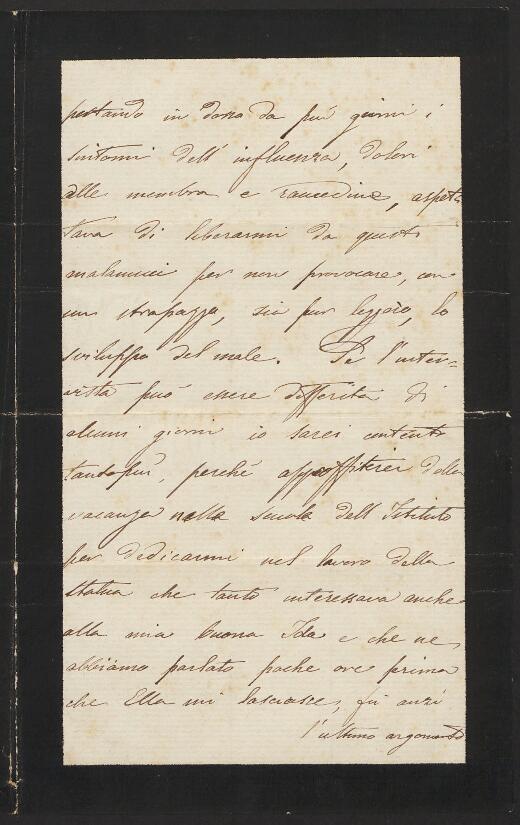 portando in dosso da più giorni i
sintomi dell'influenza, dolori
alle membra e raucedine, aspet-
tava di liberarmi da questi
malanucci per non provocare, con
uno strapazzo, sia pur leggero, lo
sviluppo del male. Se l'inter-
vista può essere differita di
alcuni giorni io sarei contento
tantopiù, perché approfitterei della
vacanza nella scuola dell'Istituto
per dedicarmi nel lavoro della
statua che tanto interessava anche
alla mia buona Ida e che ne
abbiamo parlato poche ore prima
che Ella mi lasciasse; fu anzi
l'ultimo argomento